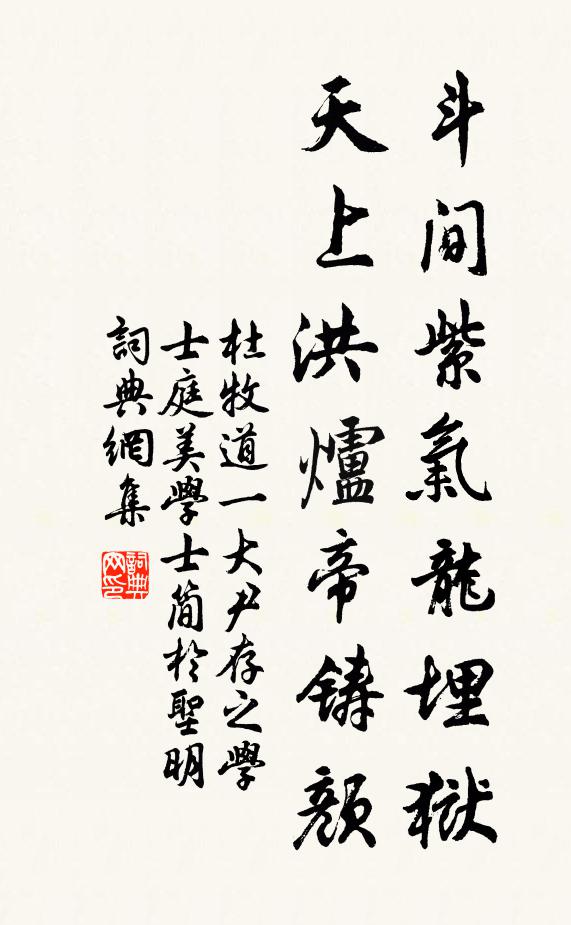 斗间紫氣龍埋獄
天上洪爐帝鑄顏
杜牧道一大尹存之學
士庭美學士简於聖明
詞典網集
詞典网印